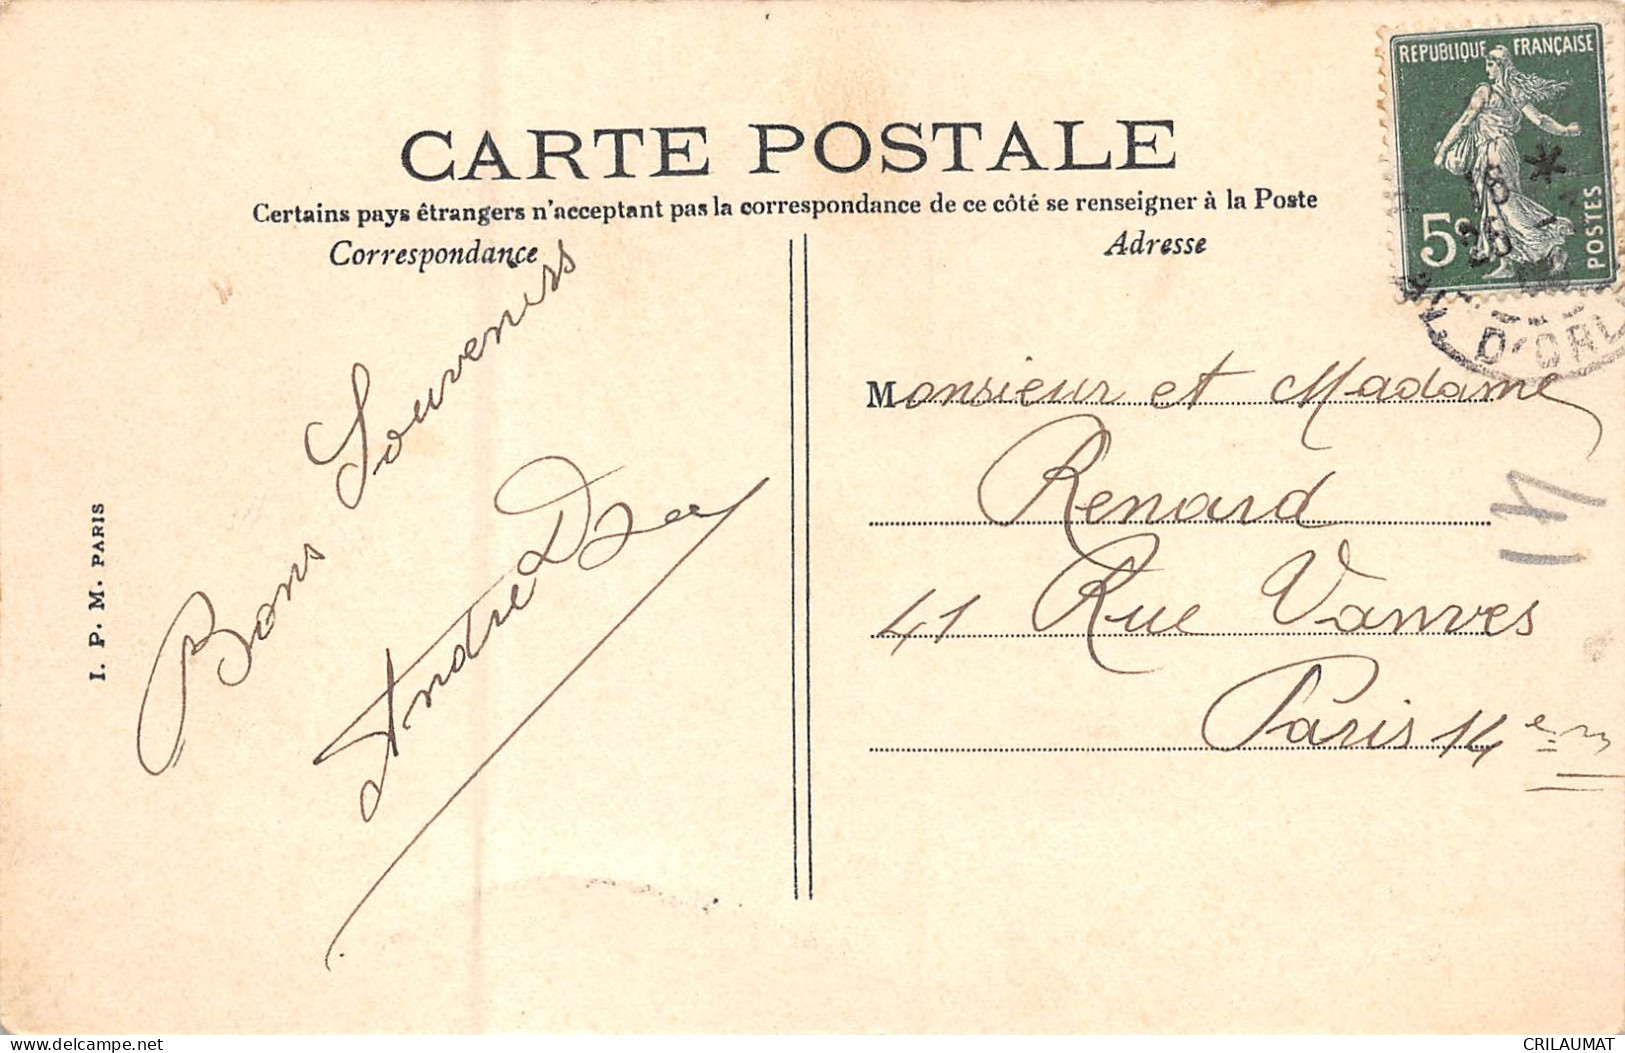 CARTE POSTALE
Certains pays étrangers n'acceptant pas la correspondance de ce côté se renseigner à la Poste
Correspondance
Adresse
REPUBLIQUE FRANÇAISE
5c
POSTES
D'ORL
Bons Souvenirs
André
I. P. M. PARIS
Monsieur et Madame
Renard
41 Rue Vanves
Paris 14em
delcampe.net
CRILAUMAT